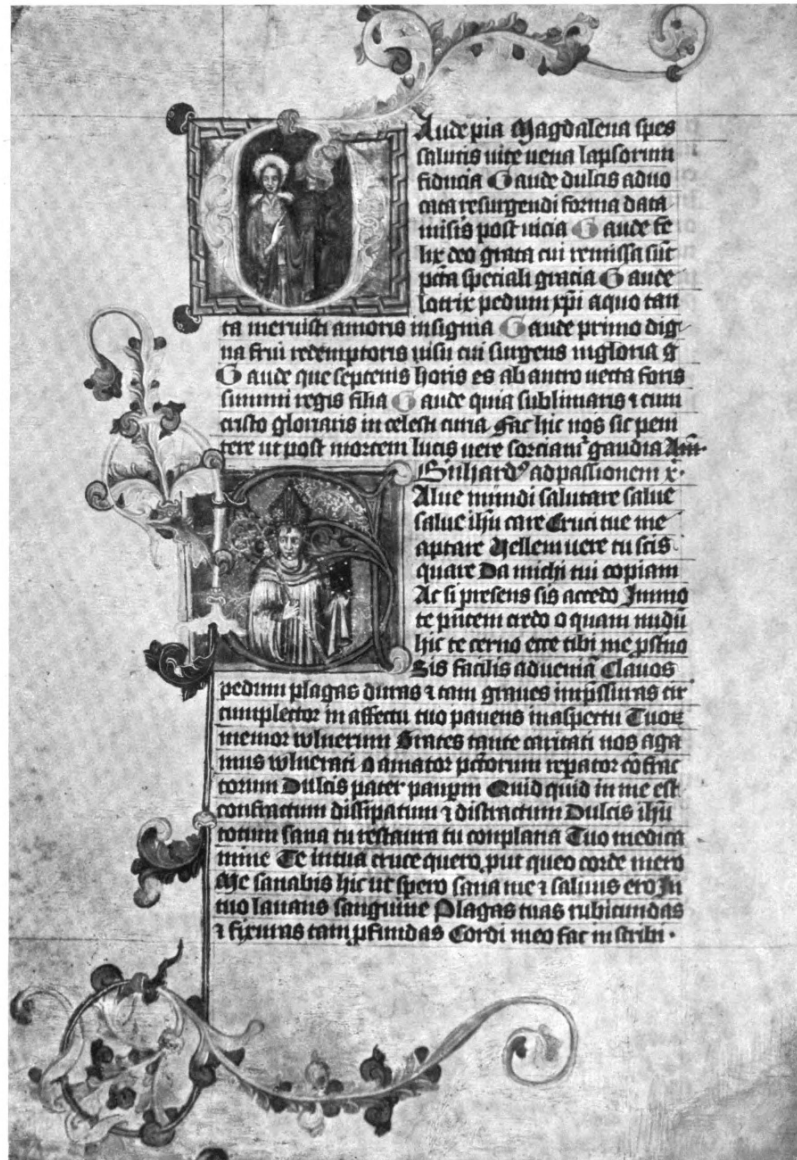 Aude pia Magdalena spes
salutis vite vena lapsorum
fiducia Gaude dulcis advo
cata resurgendi forma data
misis post vicia Gaude fe
lix deo grata cui remissa sūt
pctā speciali gracia Gaude
lotrix pedum xp̄i a quo tan
ta meruisti amoris insignia Gaude primo dig
na frui redemptoris visu cui surgens in gloria
Gaude que septenis horis es ab antro vecta foris
summi regis filia Gaude quia sublimaris ⁊ cum
cristo gloriaris in celesti curia Fac hic nos sic peni
tere ut post mortem lucis vere sorciam gaudia Am̄
ad passionem x
Alue mundi salutare salue
salue ihū care Cruci tue me
aptare Vellem vere tu scis
quare Da michi tui copiam
Ac si presens sis accedo Immo
te pn̄tem credo o quam nudū
hic te cerno ecce tibi me pstno
Sis facilis ad veniā Clavos
pedum plagas duras ⁊ tam graves impssuras cir
cumplector in affectu tuo pavens in aspectu Tuoꝝ
memor wlnerum Grates tante caritati nos aga
mus wlnerati o amator pctōrum repator cōfrac
torum Dulcis pater paupm Quid quid in me est
confractum dissipatum ⁊ distractum Dulcis ihū
totum sana tu restaura tu conplana Tuo medica
mine Te in tua cruce quero put queo corde mero
Me sanabis hic ut spero sana me ⁊ salvus ero In
tuo lavans sanguine Plagas tuas rubicundas
⁊ fixuras tam pfundas Cordi meo fac in scribi